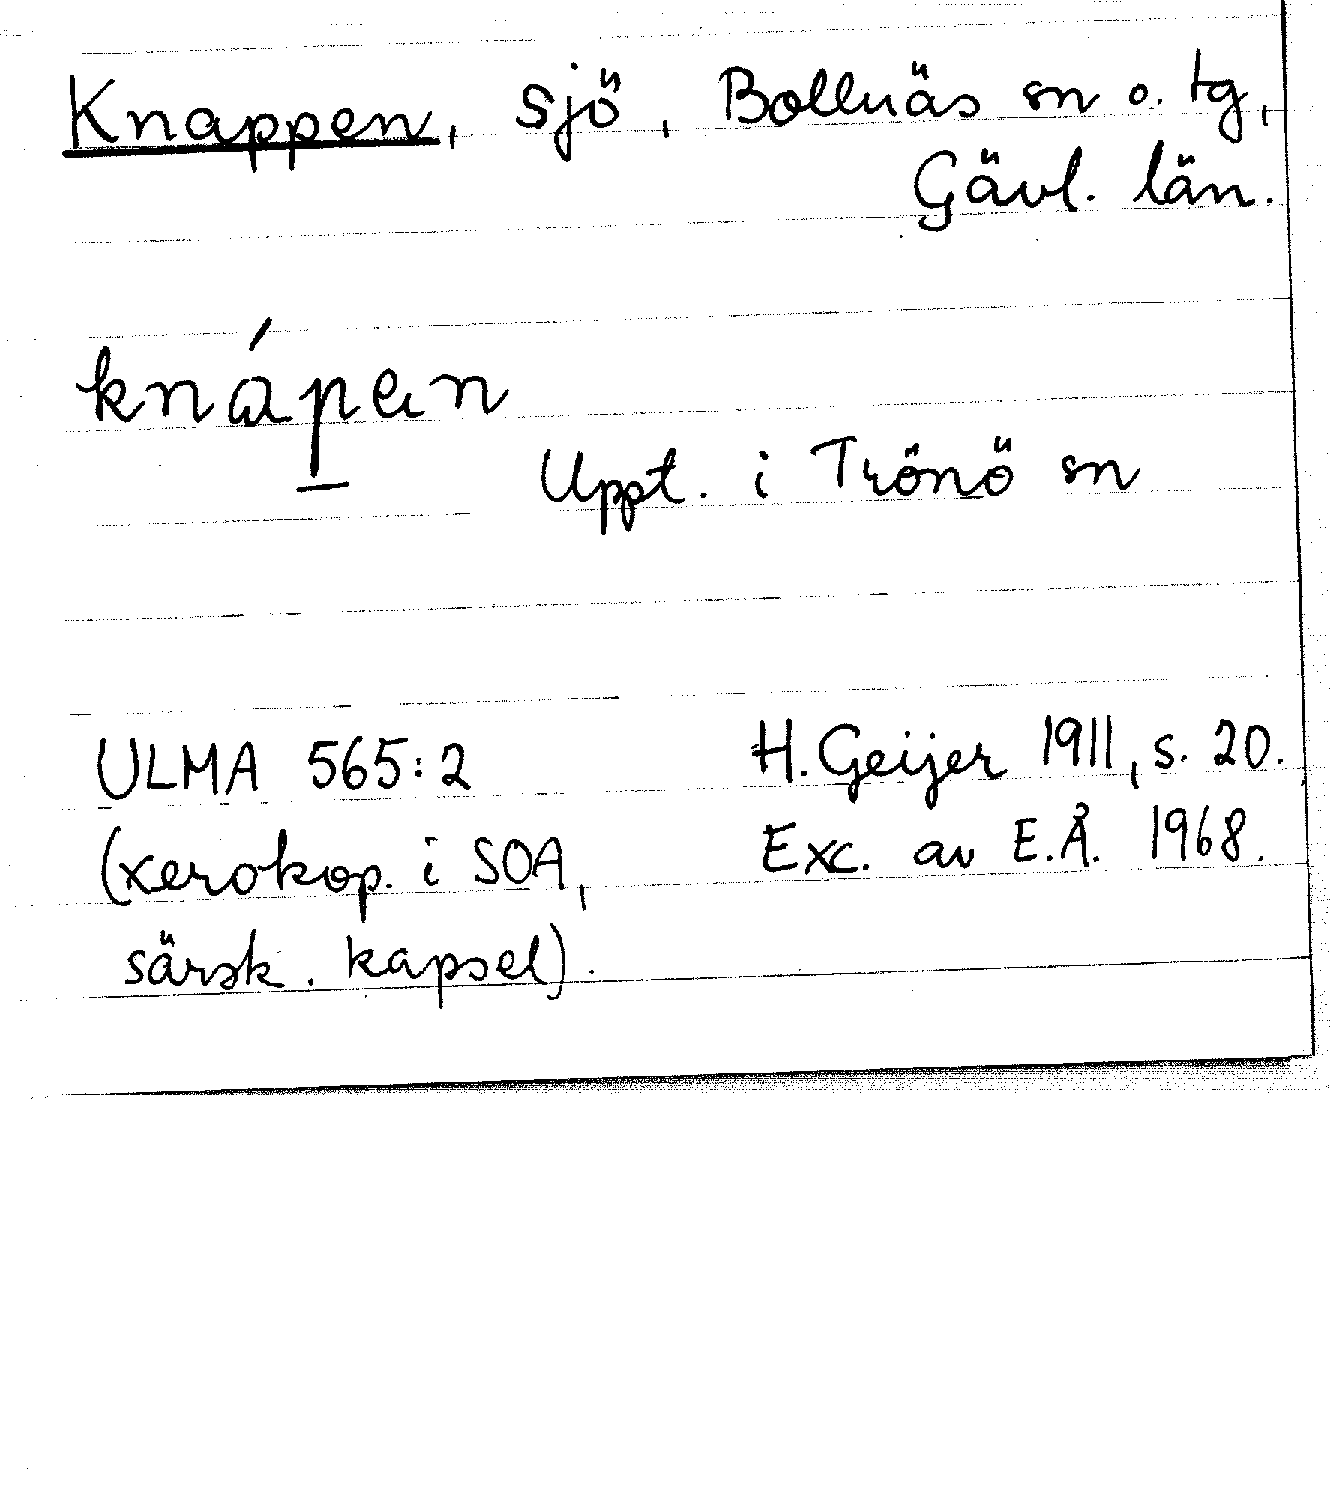 Knappen, sjö, Bollnäs sn o. tg,
Gävl. län.
knápen
Uppt. i Trönö sn
ULMA 565:2
(xerokop. i SOA,
särsk. kapsel).
H. Geijer 1911, s. 20.
Exc. av E.Å. 1968.